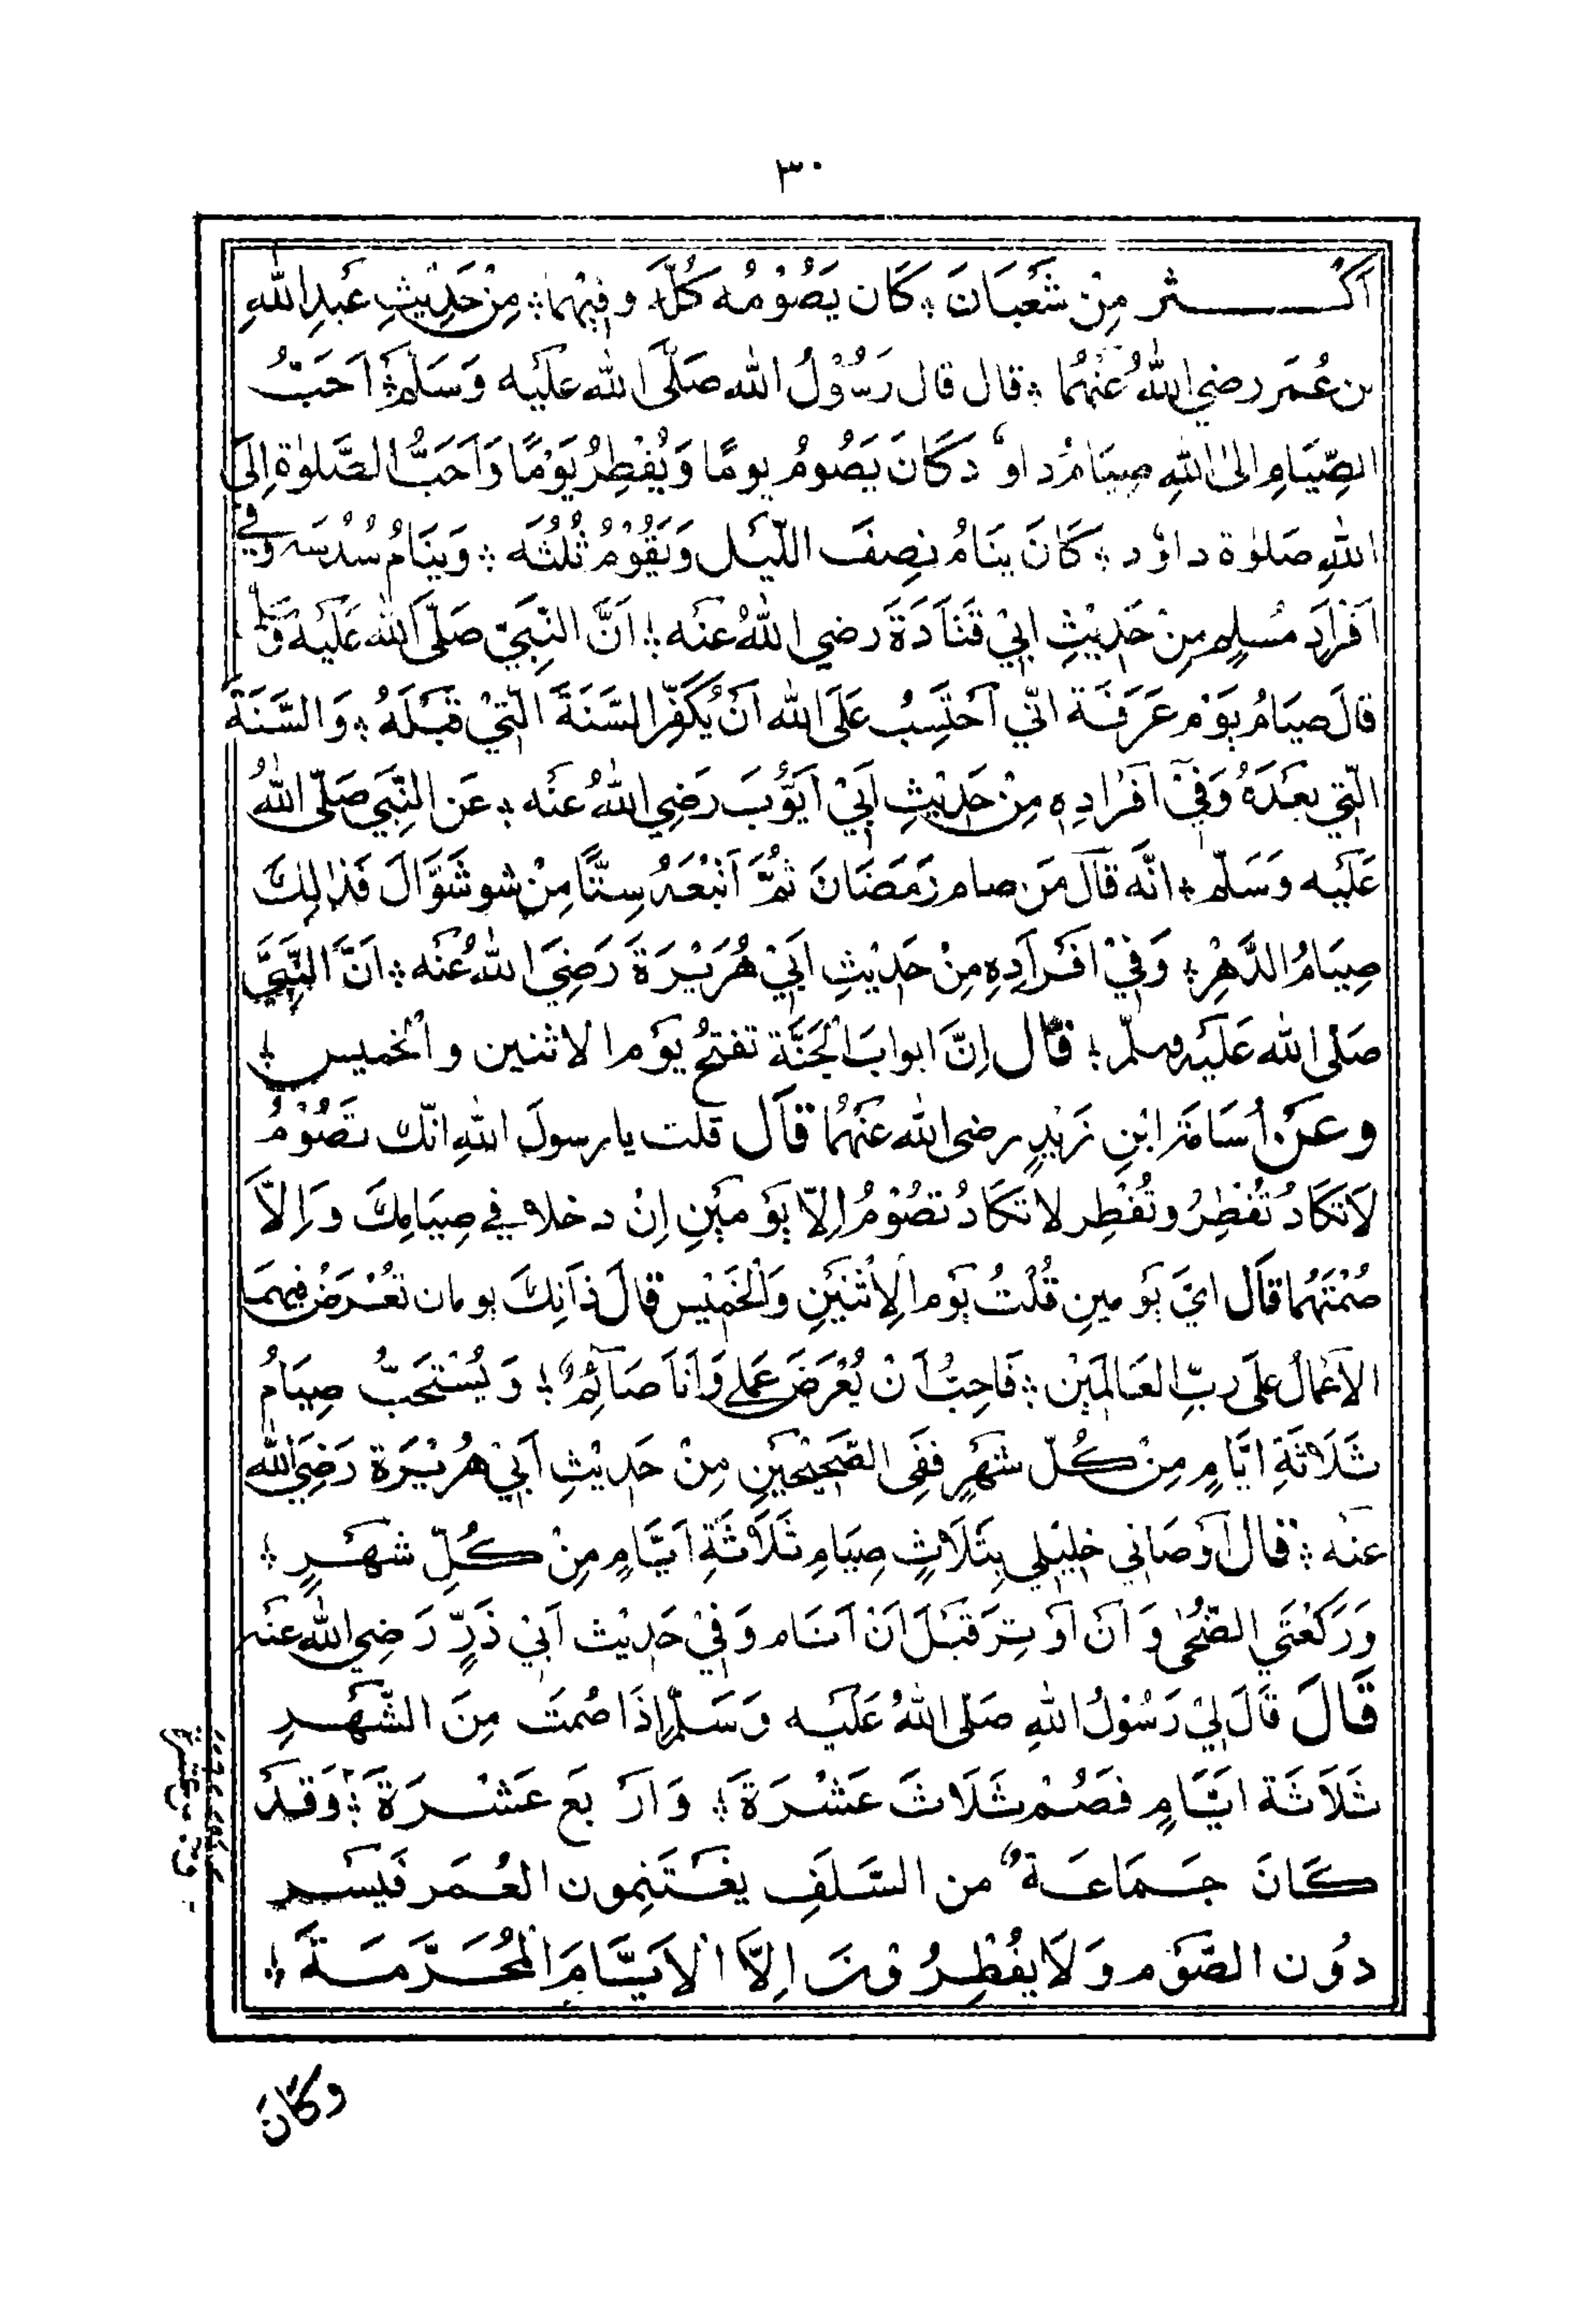 ٣٠
اَكْثر مِنْ شَعْبَانَ ؞ كَان يَصُوْمُه كُلَّه وفِيْهِمَا ؞ مِنْ حَدِيْثِ عَبدِ اللهِ
بن عُمَر رضي اللهُ عَنْهُمَا ؞ قال قال رَسُوْلُ الله صَلَّى الله عَلَيه وَسَلَّم ؞ اَحَبُّ
الصِّيَامِ الىٰ اللهِ صِيَامُ داوٗد كَانَ يَصُومُ يومًا وَيُفْطِرُ يَوْمًا وَاَحَبُّ الصَّلٰوة اِلىَ
اللهِ صَلٰوة داوٗد ؞ كَانَ ينَامُ نِصفَ اللَّيَل وَيَقُوْمُ ثُلُثَه ؞ وَيَنَامُ سُدُسَه وَفي
اَفْرَادِ مُسْلِم مِنْ حَدِيْثِ اَبِيْ قَتَادَةَ رضي اللهُ عَنه ؞ اَنَّ النَّبِيَّ صَلَّى الله عَلَيه وَسَلَّم
قالَ صيَامُ يَوْمِ عَرَفَة انّي اَحتَسِبُ عَلَى الله اَنْ يُكَفِّر السَّنَةَ الَّتيْ قَبْلَهُ ؞ وَالسَّنَةَ
الَّتِي بعدَهُ وَفِيْ اَفرَادِهِ مِنْ حَدِيْثِ اَبِيْ اَيّوُّبَ رَضِي اللهُ عنْه ؞ عَن النَّبِي صَلّى اللهُ
عَلَيه وَسَلّم ؞ انَّه قَالَ مَن صام رَمَضَانَ ثُمَّ اَتْبَعَهُ سِتًّا مِنْ شو شَوَّالَ فَذٰلِكَ
صِيَامُ الدَّهْرِ ؞ وَفِيْ افْرَادِهِ مِنْ حَدِيْثِ اَبِيْ هُرَيْرَةَ رَضِيَ اللهُ عَنه ؞ اَنَّ النَّبِيَّ
صَلى الله عَلَيْه وسلّم ؞ قَال اِنَّ ابوابَ الجَنَّة تفتحُ يَوْم الاثنين والخميس ؞
وعَنْ اُسَامَةَ ابْنِ زَيْدٍ رضى الله عَنْهُمَا قَال قلت يا رسولَ اللهِ انّك تَصُوْمُ
لَا تَكَادُ تُفْطِرُ وتُفْطِر لا تَكَادُ تصُوْمُ اِلّا يَوْمَيْنِ اِنْ دخلا في صِيَامِكَ وَاِلَّا
صُمْتَهُمَا قَال ايَّ يَومينِ قُلْتُ يَوم الِاثْنَيْنِ وَالْخَمِيْس قالَ ذَانِكَ يومان تُعْرَضُ فِيهِمَا
الاَعْمَالُ عَلى رَبِّ العَالَمِيْن ؞ فَاُحِبُّ اَنْ يُعْرَضَ عَمَلي وَاَنَا صَآئِمٌ ؞ وَيُسْتَحَبُّ صِيَامُ
ثَلَاثَةِ ايَّامٍ مِنْ كُلّ شَهْرٍ فَفِى الصَّحِيْحَيْنِ مِنْ حَدِيْثِ اَبِيْ هُرَيْرَة رَضِيَ الله
عَنْه ؞ قَال اَوْصَاني خَلِيْلِي بِثَلَاثٍ صِيَامِ ثَلَاثَةِ اَيَّامٍ مِنْ كُلِّ شَهْرٍ ؞
وَرَكْعَتَي الضُّحٰى وَاَنْ اَوْتِرَ قَبْلَ اَنْ اَنَام وَفِيْ حَدِيْث اَبِيْ ذَرٍّ رَضِي الله عنه
قَالَ قَالَ لِيْ رَسُوْلُ اللهِ صَلّى اللهُ عَلَيه وَسَلَّم اِذَا صُمتَ مِنَ الشَّهْرِ
ثَلَاثَة ايَّامٍ فَصُمْ ثَلَاثَ عَشْرَةَ ؞ وَاَرْبَع عَشْرَةَ ؞ وَقَدْ
كَانَ جَمَاعَةٌ من السَّلَفِ يغْتَنِمون العُمَر فَيَسر
دُون الصَّوْم وَلَا يفُطِرُوْنَ اِلَّا الاَيَّامَ المُحَرَّمَةَ ؞
وكَانَ